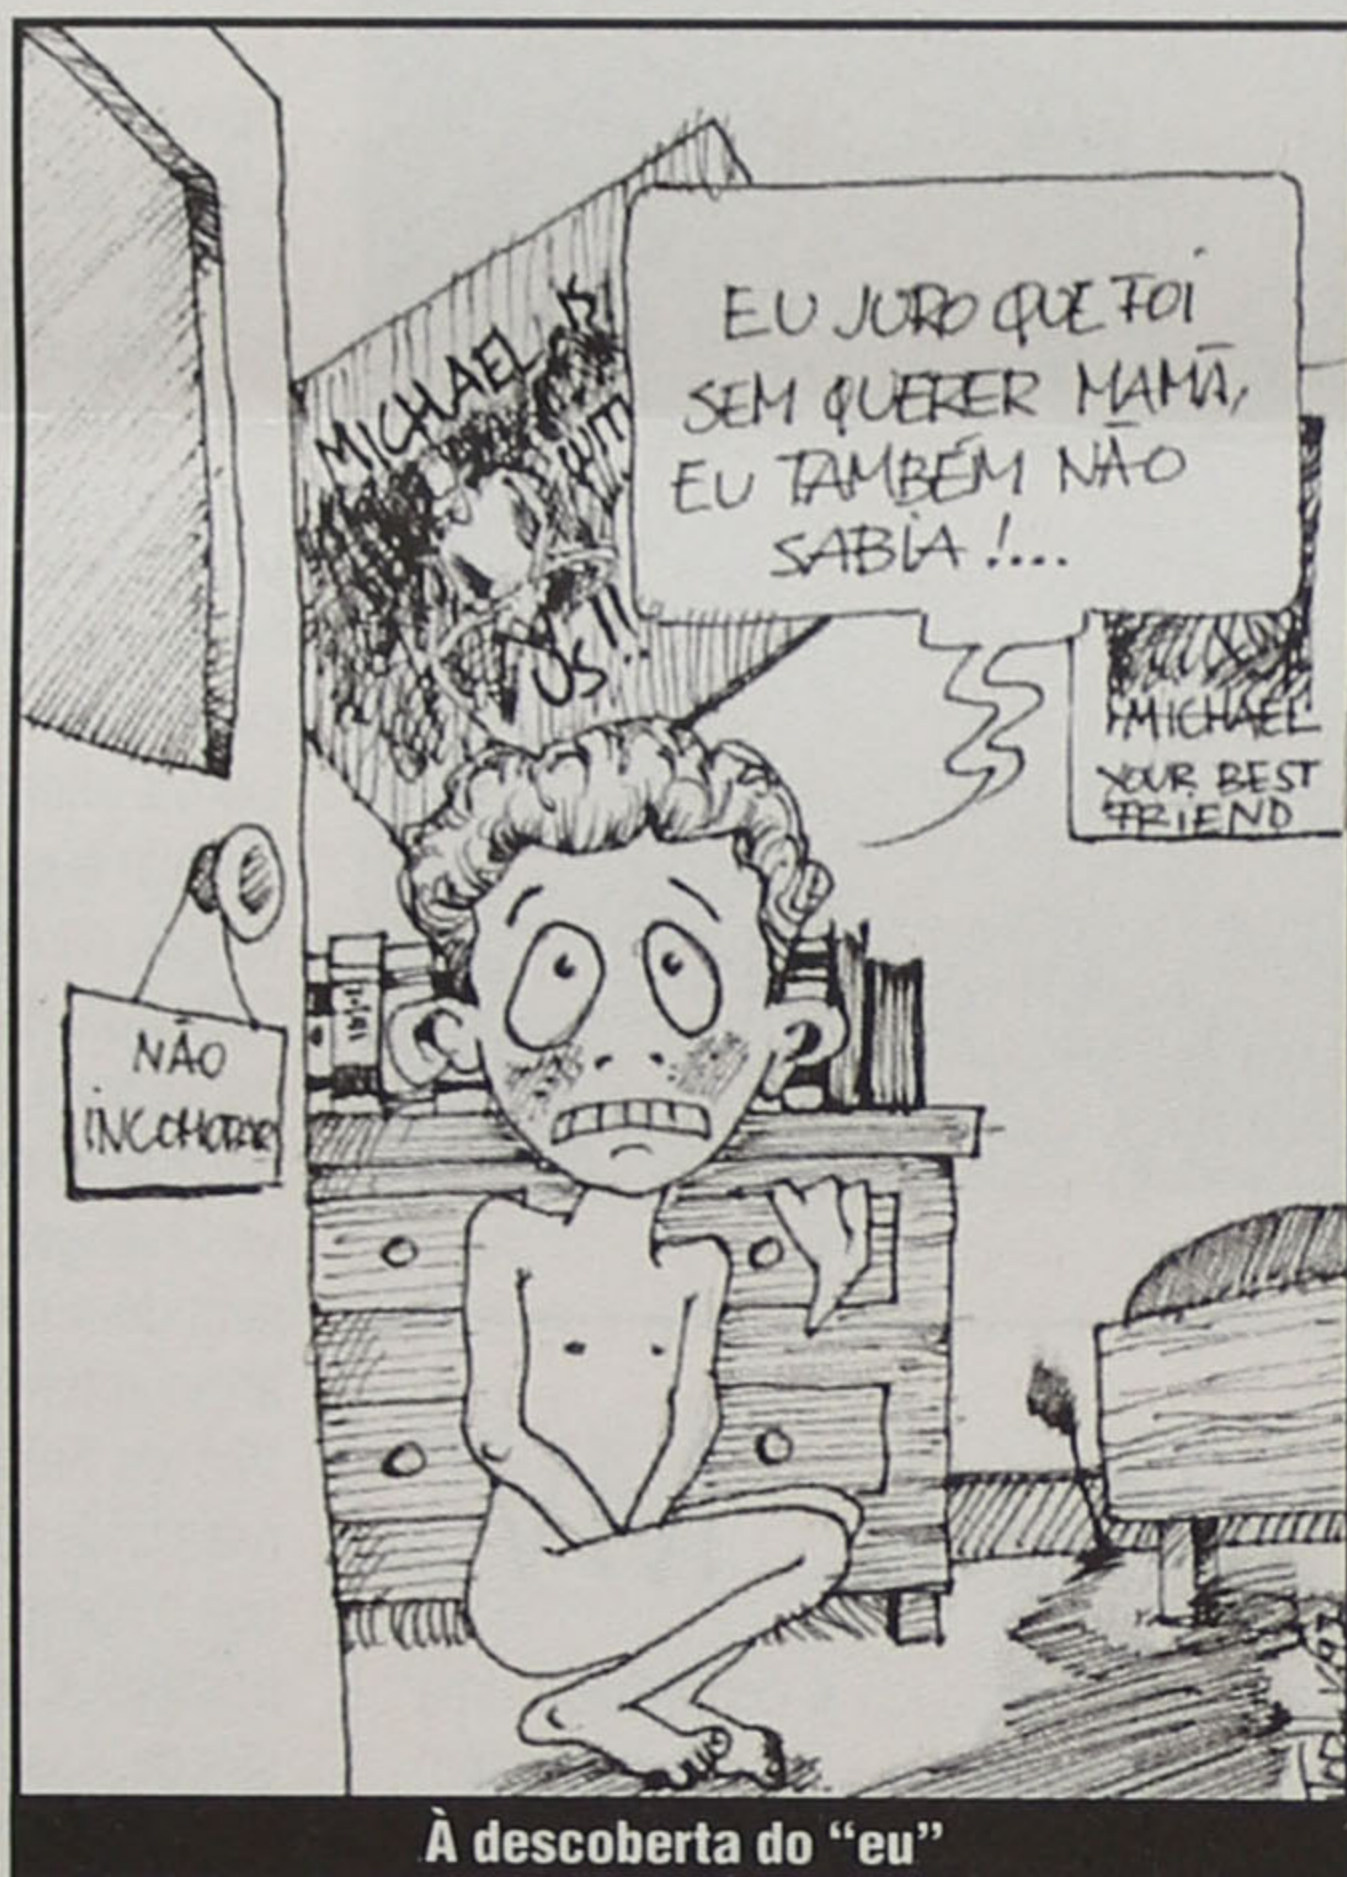 EU JURO QUE FOI
SEM QUERER MAMÃ,
EU TAMBÉM NÃO
SABIA!...
MICHAEL
US!!
MICHAEL
YOUR BEST
FRIEND
NÃO
INCOMODAR
À descoberta do “eu”